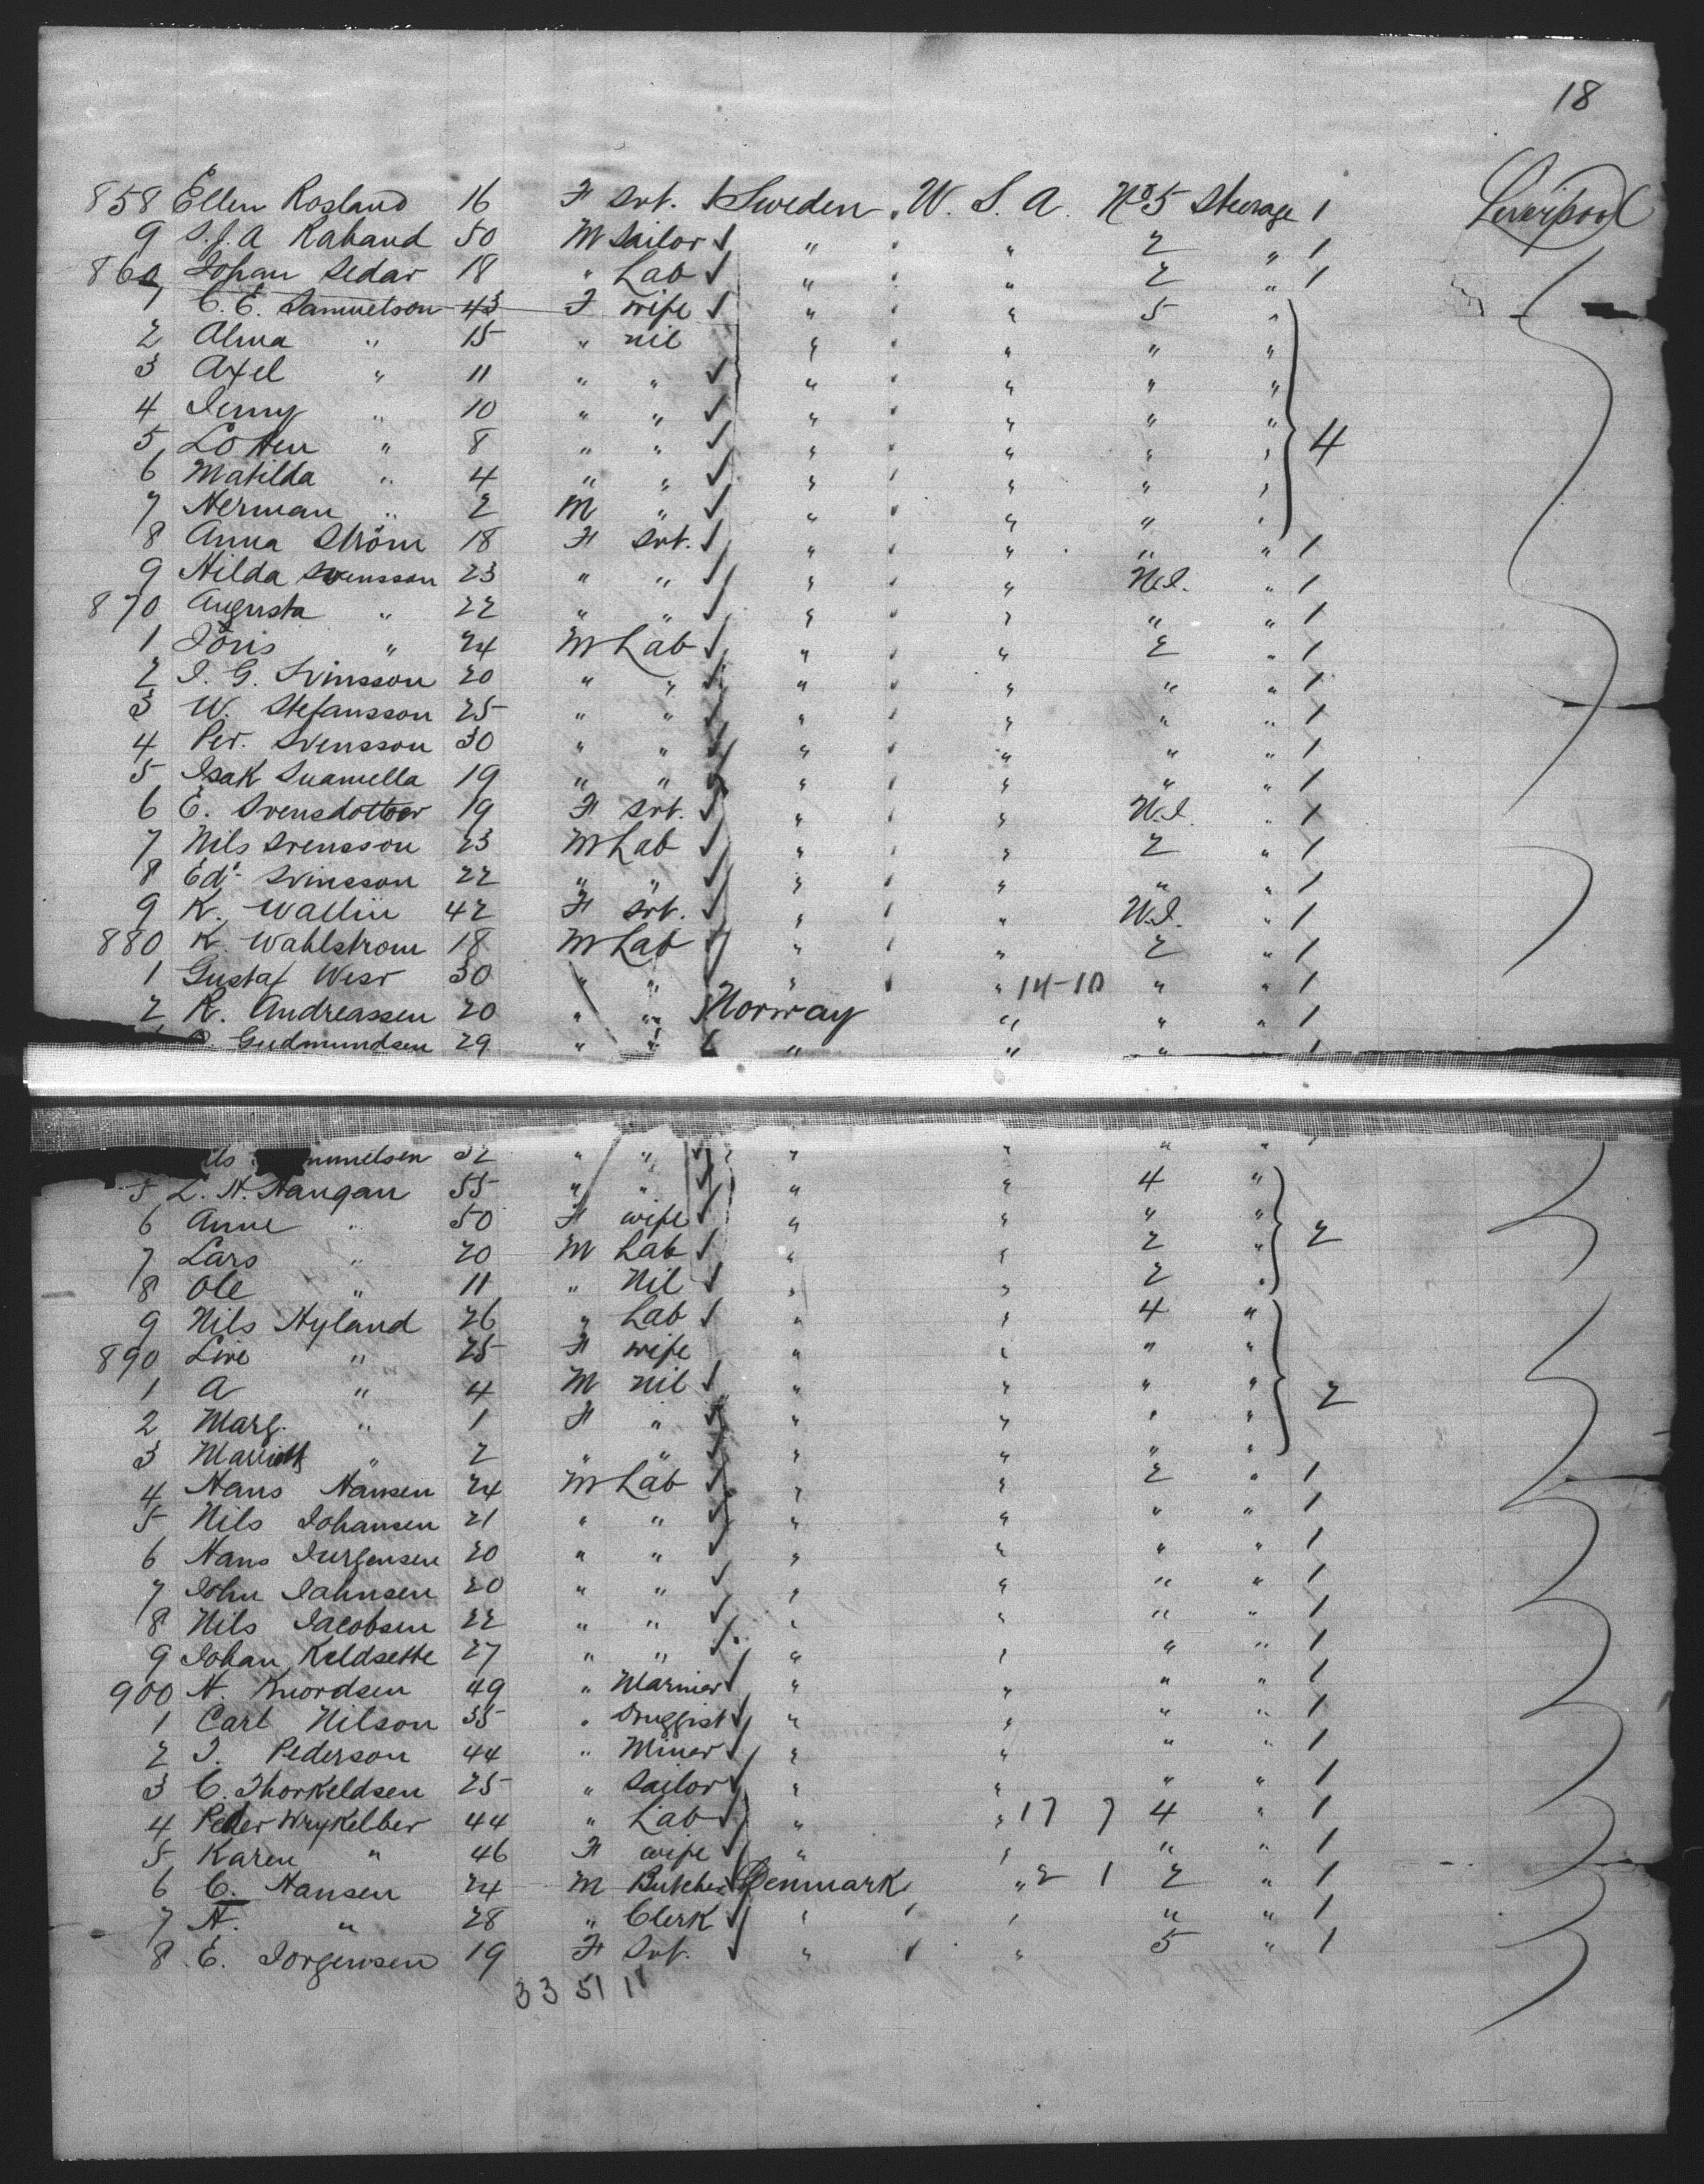 18
858 Ellen Rosland 16 F Svt. Sweden W. S. A. No 5 Steerage 1 Liverpool
9 S. J. A Raband 50 M Sailor " " 2 " 1
860 Johan Sedar 18 " Lab " " 2 " 1
1 C. E. Samuelson 43 F wife " " 5 "
2 Alma " 15 " nil " " " "
3 Axel " 11 " " " " " "
4 Jenny " 10 " " " " " " 4
5 Lotten " 8 " " " " " "
6 Matilda " 4 " " " " " "
7 Herman " 2 M " " " " "
8 Anna Ström 18 F Svt. " " " " 1
9 Hilda Svensson 23 " " " " N.I. " 1
870 Augusta " 22 " " " " " " 1
1 Jöns " 24 M Lab " " 2 " 1
2 J. G. Svinsson 20 " " " " " " 1
3 W. Stefansson 25 " " " " " " 1
4 Per. Svensson 30 " " " " " " 1
5 Isak Suamella 19 " " " " " " 1
6 E. Svensdotter 19 F Svt. " " N.I. " 1
7 Nils Svensson 23 M Lab " " 2 " 1
8 Edd Svinsson 22 " " " " " " 1
9 K. Wallin 42 F Svt. " " N.I. " 1
880 K. Wahlstrom 18 M Lab " " 2 " 1
1 Gustaf Wesr 30 " " " " 14-10 " " 1
2 R. Andreassen 20 " " Norway " " " 1
Gudmundsen 29 " " " " " " 1
32 " " " " " "
5 L. H. Haugan 55 " " " " 4 "
6 Anne " 50 F wife " " " " 2
7 Lars " 20 M Lab " " 2 "
8 Ole " 11 " Nil " " 2 "
9 Nils Hyland 26 " Lab " " 4 "
890 Live " 25 F wife " " " "
1 A " 4 M nil " " " " 2
2 Marg. " 1 F " " " " "
3 " 2 " " " " " "
4 Hans Hansen 24 M Lab " " 2 " 1
5 Nils Johansen 21 " " " " " " 1
6 Hans Jurgensen 20 " " " " " " 1
7 John Jahnsen 20 " " " " " " 1
8 Nils Jacobsen 22 " " " " " " 1
9 Johan Keldsette 27 " " " " " " 1
900 H. Knordsen 49 " Mariner " " " " 1
1 Carl Nilson 35 " Druggist " " " " 1
2 J. Pederson 44 " Miner " " " " 1
3 C. Thorkeldsen 25 " Sailor " " " " 1
4 Peder Wrykelber 44 " Lab " " 17 7 4 " 1
5 Karen " 46 F wife " " " " 1
6 C. Hansen 24 M Butcher Denmark " 2 1 2 " 1
7 H. " 28 " Clerk " " " " 1
8 E. Jorgensen 19 F Svt. " " 5 " 1
33 51 11